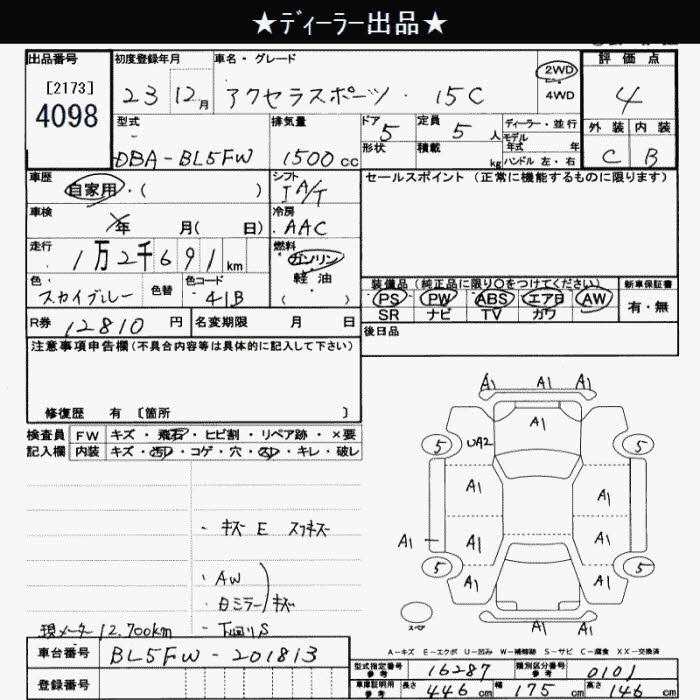 ★ディーラー出品★
出品番号
[2173]
4098
初度登録年月
23 12月
車名・グレード
アクセラスポーツ・ 15C
2WD
4WD
評価点
4
外装 内装
C B
型式
DBA-BL5FW
排気量
1500cc
ドア 5
形状
定員 5 人
積載 kg
ディーラー・並行
モデル
年式 年
ハンドル 左・右
車歴
自家用・( )
シフト
IA/T
車検
年 月( 日)
冷房
AAC
走行
1万2千691km
燃料
ガソリン
軽油
( )
色
スカイブルー
色替
色コード
41B
R券 12810 円
名変期限 月 日
セールスポイント (正常に機能するものに限ります)
装備品(純正品に限り○をつけてください)
PS PW ABS エアB AW
SR ナビ TV カワ
新車保証書
有・無
後日品
注意事項申告欄(不具合内容等は具体的に記入して下さい)
修復歴 有 〔箇所 〕
検査員
記入欄
FW キズ・飛石・ヒビ割・リペア跡・×要
内装 キズ・汚れ・コゲ・穴・スレ・キレ・破レ
・キズ E スリキズ
・AW
・白ミラー キズ
・下回りS
現メーター12.700km
車台番号 BL5FW-201813
登録番号
A1 A1 A1
A1
5 UA2 5
A1 A1
A1 A1 A1
5 A1 A1 5
A1 A1
スペア
A-キズ E-エクボ U-凹み W-補修跡 S-サビ C-腐食 XX-交換済
型式指定番号
参考
16287
類別区分番号
参考
0101
車庫証明用
参考
長さ 446 cm 幅 175 cm 高さ 146 cm